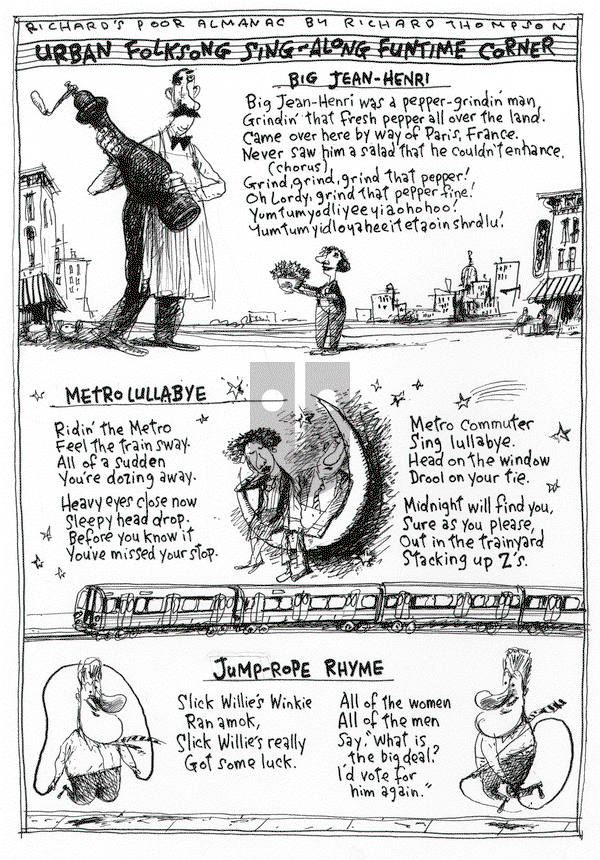 RICHARD'S POOR ALMANAC BY RICHARD THOMPSON
URBAN FOLKSONG SING-ALONG FUNTIME CORNER
BIG JEAN-HENRI
Big Jean-Henri was a pepper-grindin' man,
Grindin' that fresh pepper all over the land.
Came over here by way of Paris, France.
Never saw him a salad that he couldn't enhance.
(chorus)
Grind, grind, grind that pepper!
Oh Lordy, grind that pepper fine!
Yumtumyodliyeeyiaohohoo!
Yumtumyidloyaheeitetaoinshrdlu!
METRO LULLABYE
Ridin' the Metro
Feel the train sway.
All of a sudden
You're dozing away.
Heavy eyes close now
Sleepy head drop.
Before you know it
You've missed your stop.
Metro commuter
Sing lullabye.
Head on the window
Drool on your tie.
Midnight will find you,
Sure as you please,
Out in the trainyard
Stacking up Z's.
JUMP-ROPE RHYME
Slick Willie's Winkie
Ran amok,
Slick Willie's really
Got some luck.
All of the women
All of the men
Say, "What is
the big deal?
I'd vote for
him again."